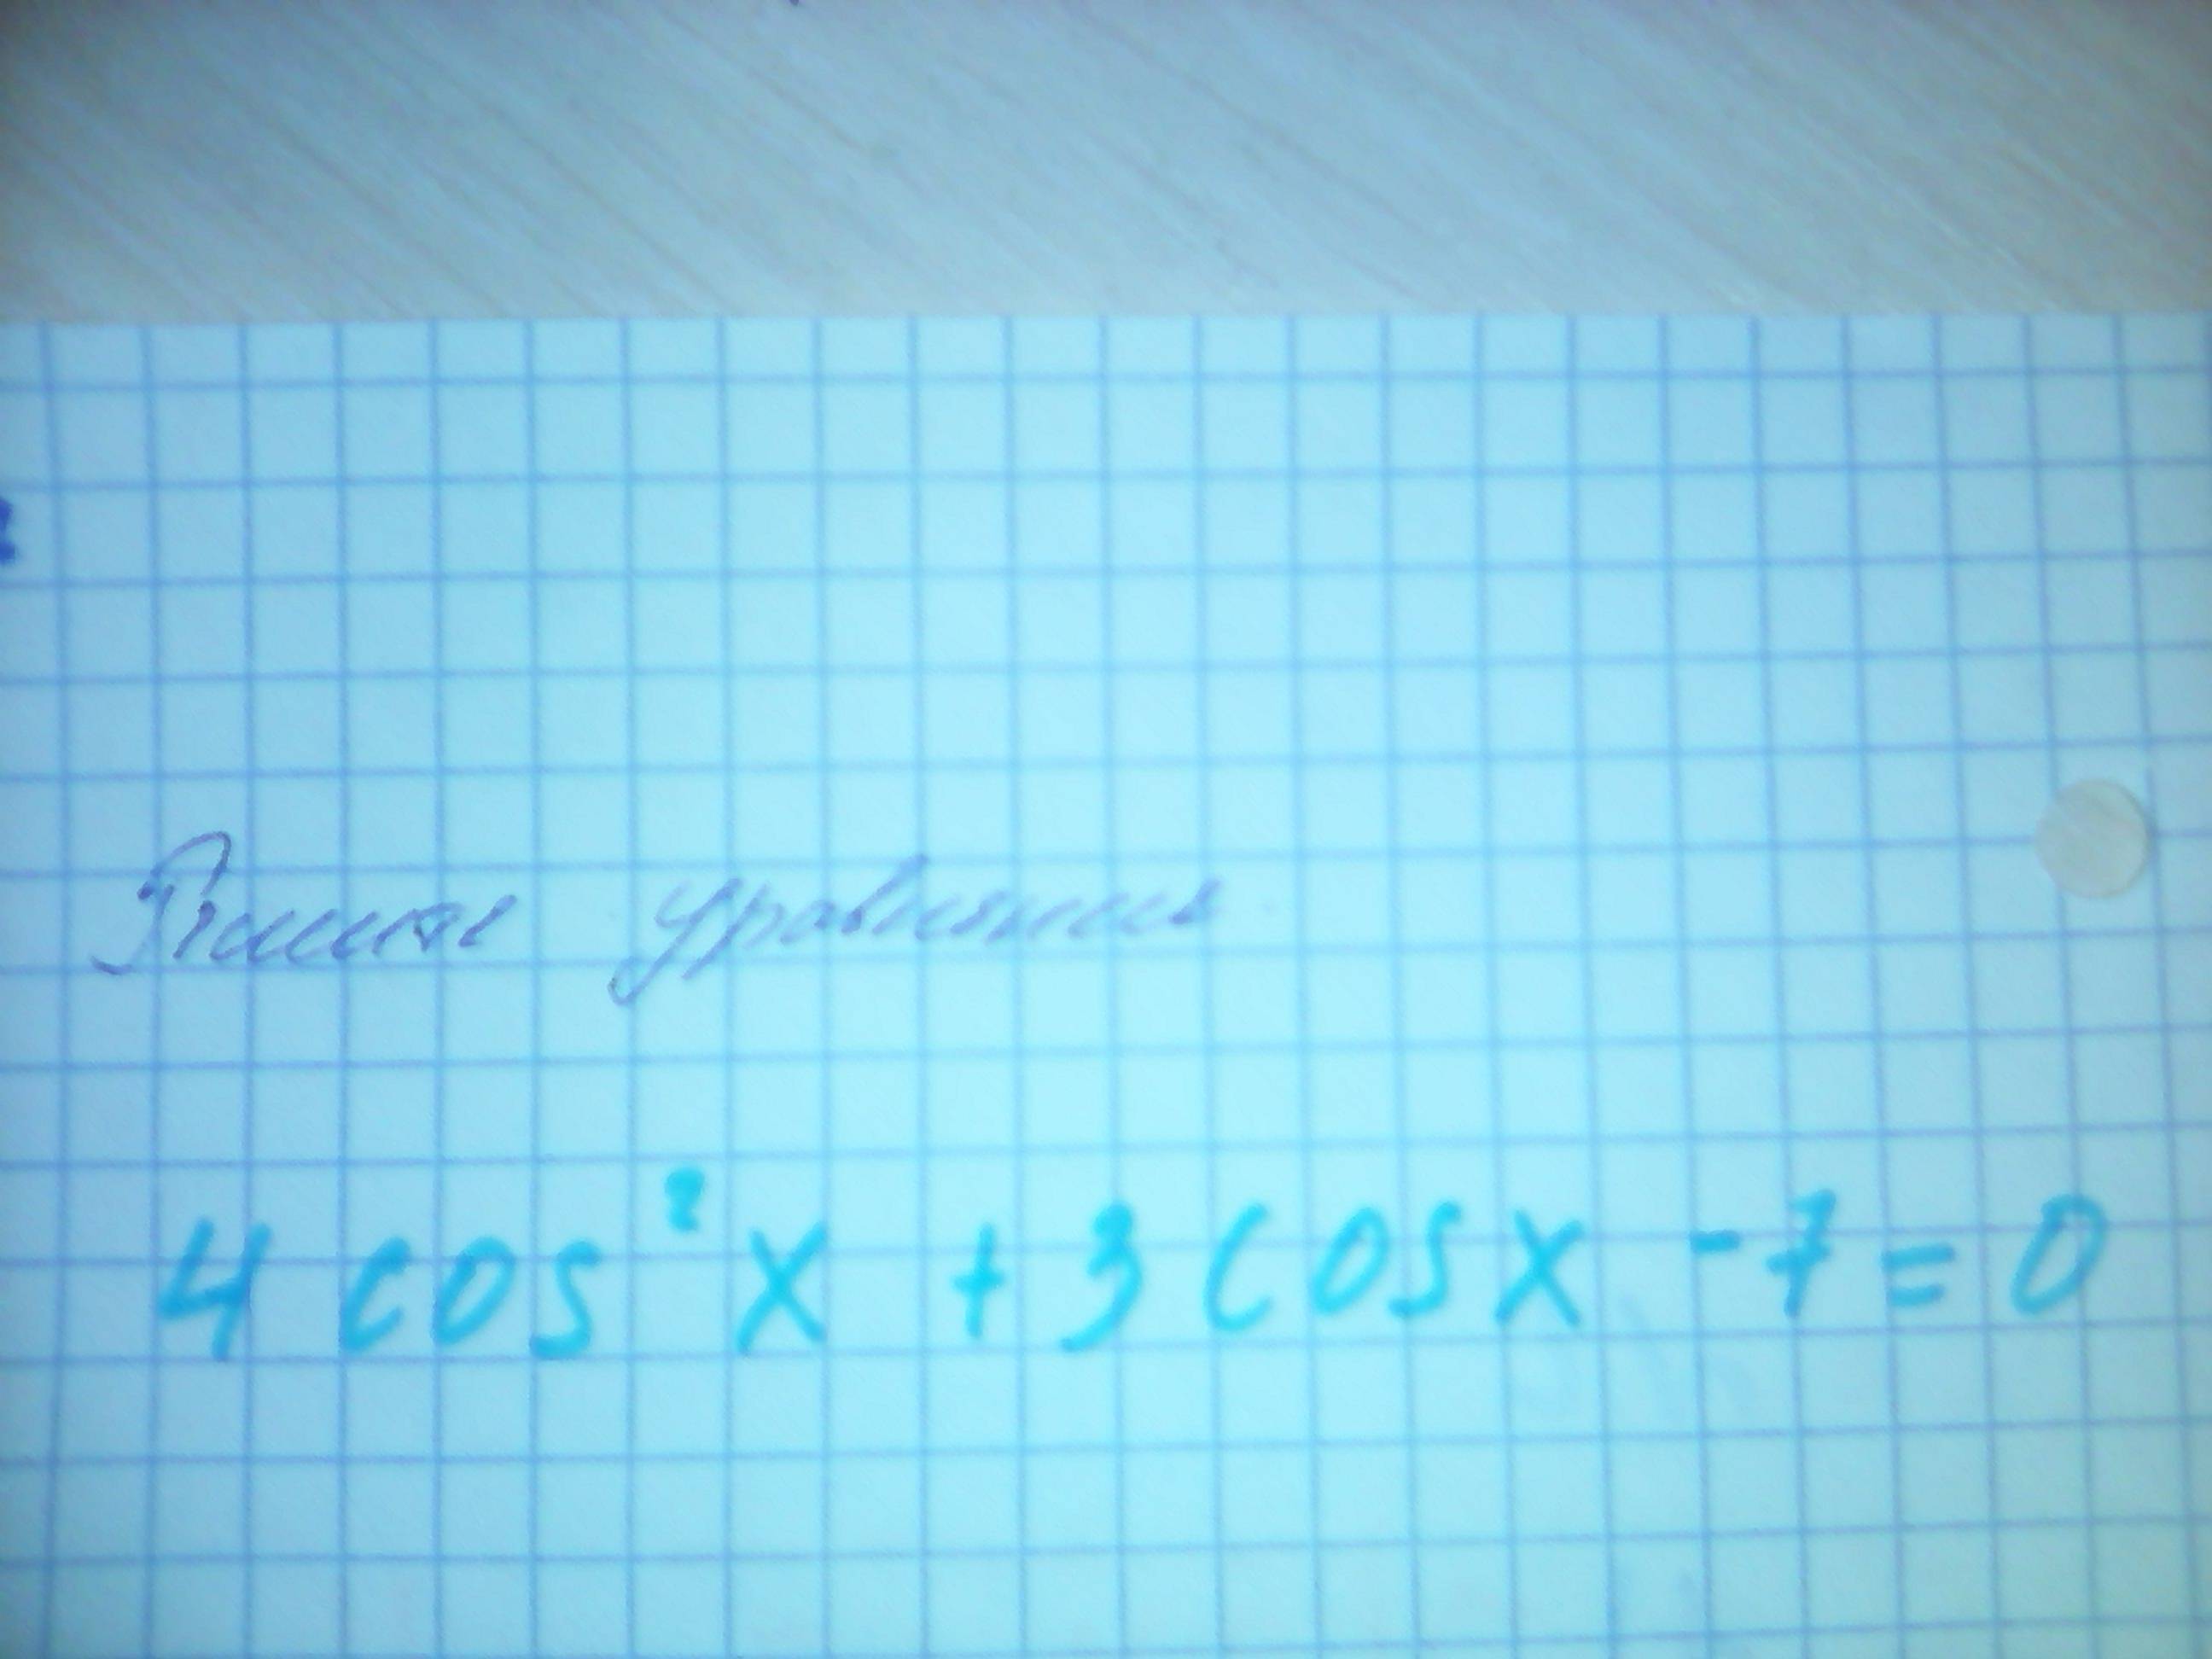 Решите уравнение
4 cos²x + 3 cosx - 7 = 0